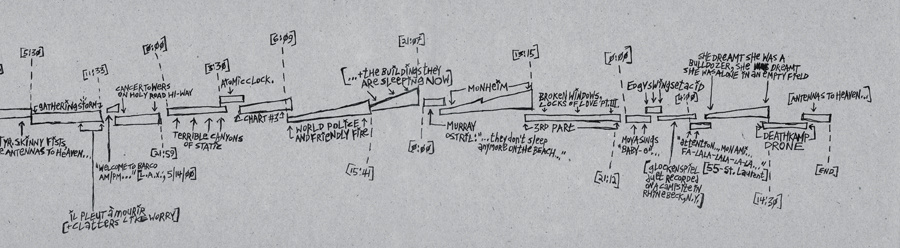 [5:30]
[11:33]
[0:00]
[3:30]
[6:09]
[21:07]
[13:15]
[0:00]
SHE DREAMT SHE WAS A
BULLDOZER, SHE DREAMT
SHE WAS ALONE IN AN EMPTY FIELD
ATOMIC CLOCK.
[...+THE BUILDINGS THEY
ARE SLEEPING NOW]
MONHEIM
CANCER TOWERS
ON HOLY ROAD HI-WAY
BROKEN WINDOWS,
LOCKS OF LOVE PT.III
EDGYSWINGSETACID
[4:10]
[ANTENNAS TO HEAVEN...]
GATHERING STORM
CHART #3
WORLD POLICE
AND FRIENDLY FIRE
TERRIBLE CANYONS
OF STATIC
MURRAY
OSTRIL: "...THEY DON'T SLEEP
ANYMORE ON THE BEACH..."
3RD PART
MOYA SINGS
"BABY-O"...
"ATTENTION...MON AMI...
FA-LALA-LALA-LA-LA..."
[55-ST. LAURENT]
DEATHKAMP
DRONE
SKINNY FISTS
ANTENNAS TO HEAVEN...
"WELCOME TO BARCO
AM/PM..." [L.A.X.; 5/14/00]
[21:59]
[15:41]
[0:00]
[21:12]
[GLOCKENSPIEL
DUET RECORDED
ON A CAMPSITE IN
RHINEBECK, N.Y.]
[14:30]
[END]
IL PLEUT À MOURIR
[+CLATTERS LIKE WORRY]